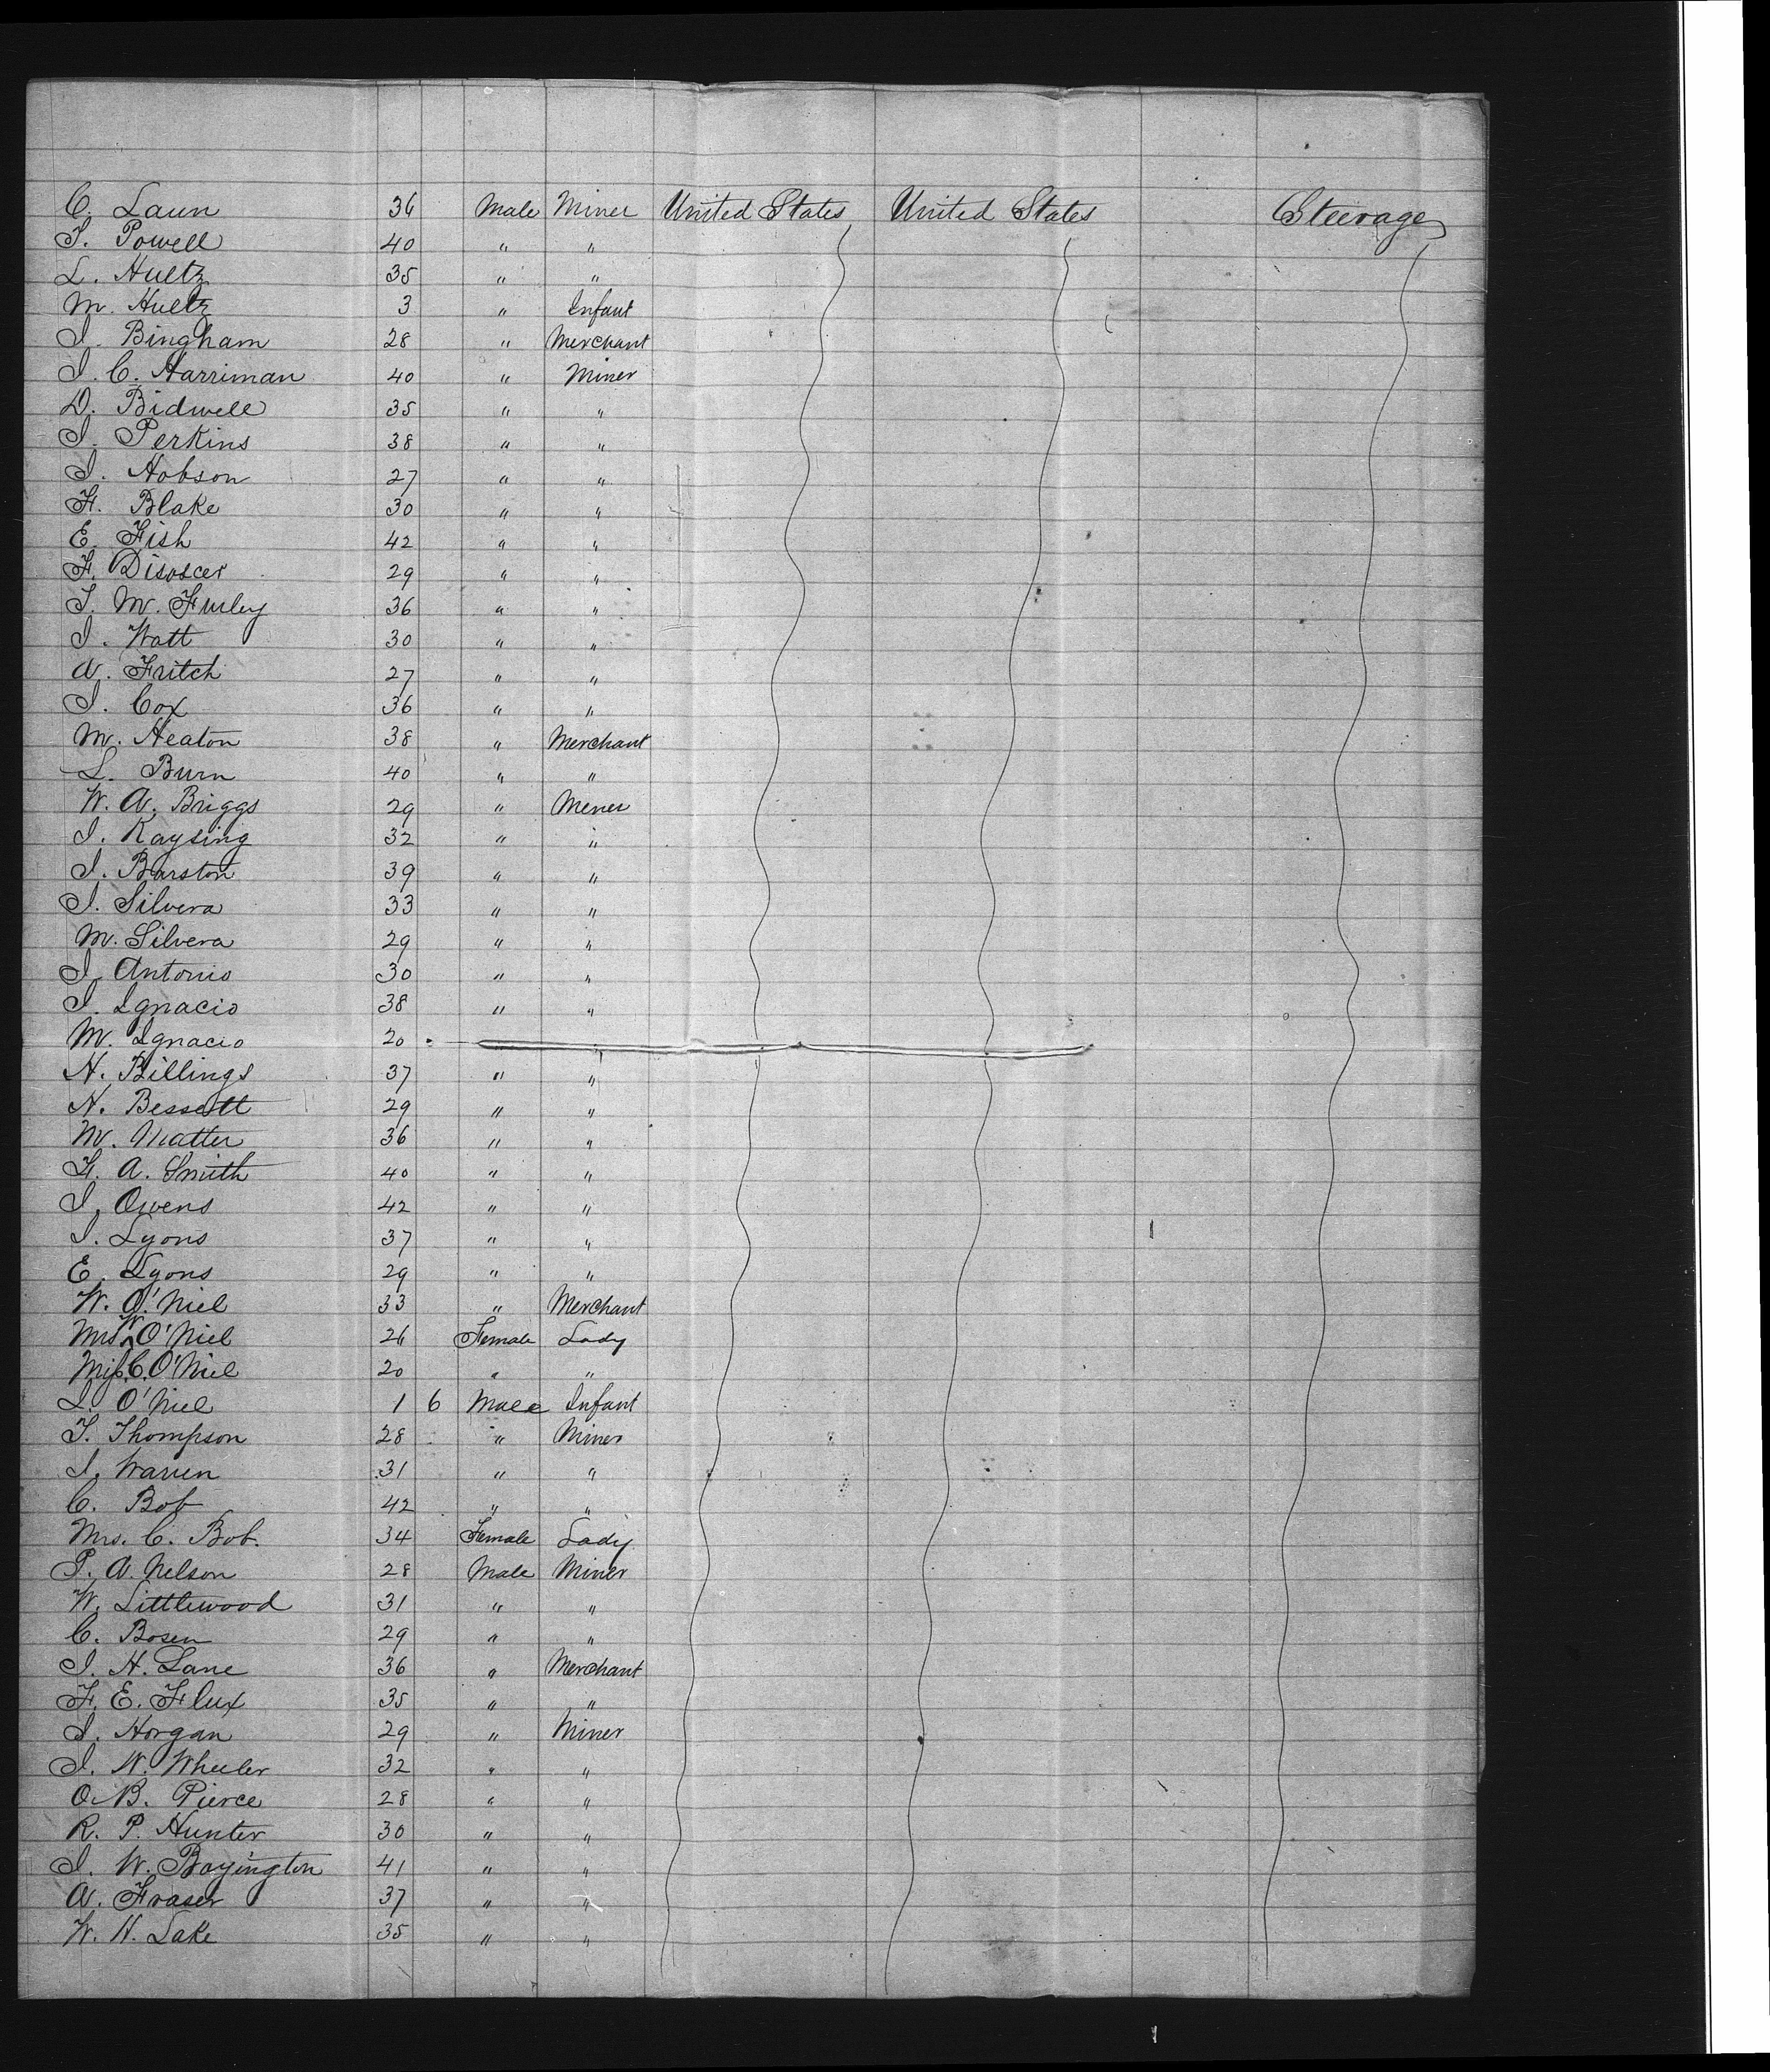 C. Laun 36 Male Miner United States United States Steerage
T. Powell 40 " "
L. Hultz 35 " "
M. Hultz 3 " Infant
I. Bingham 28 " Merchant
I. C. Harriman 40 " Miner
D. Bidwell 35 " "
I. Perkins 38 " "
I. Hobson 27 " "
F. Blake 30 " "
E. Fish 42 " "
F. 29 " "
T. M. Furley 36 " "
I. Watt 30 " "
A. Fritch 27 " "
I. Cox 36 " "
M. Heaton 38 " Merchant
L. Burn 40 " "
W. A. Briggs 29 " Miner
I. Kaysing 32 " "
I. Barston 39 " "
I. Silvera 33 " "
M. Silvera 29 " "
I. Antonio 30 " "
I. Ignacio 38 " "
M. Ignacio 20
H. Billings 37 " "
N. Bessett 29 " "
M. Matter 36 " "
H. A. Smith 40 " "
I. Owens 42 " "
I. Lyons 37 " "
E. Lyons 29 " "
W. O'Niel 33 " Merchant
Mrs W O'Niel 26 Female Lady
Miss C. O'Niel 20 " "
L. O'Niel 1 6 Male Infant
T. Thompson 28 " Miner
I. Warren 31 " "
C. Bob 42 " "
Mrs. C. Bob. 34 Female Lady
P. A. Nelson 28 Male Miner
W. Littlewood 31 " "
C. Bosen 29 " "
I. H. Lane 36 " Merchant
F. E. Flux 35 " "
I. Horgan 29 " Miner
I. W. Wheeler 32 " "
O. B. Pierce 28 " "
R. P. Hunter 30 " "
I. W. Boyington 41 " "
A. Fraser 37 " "
W. H. Lake 35 " "